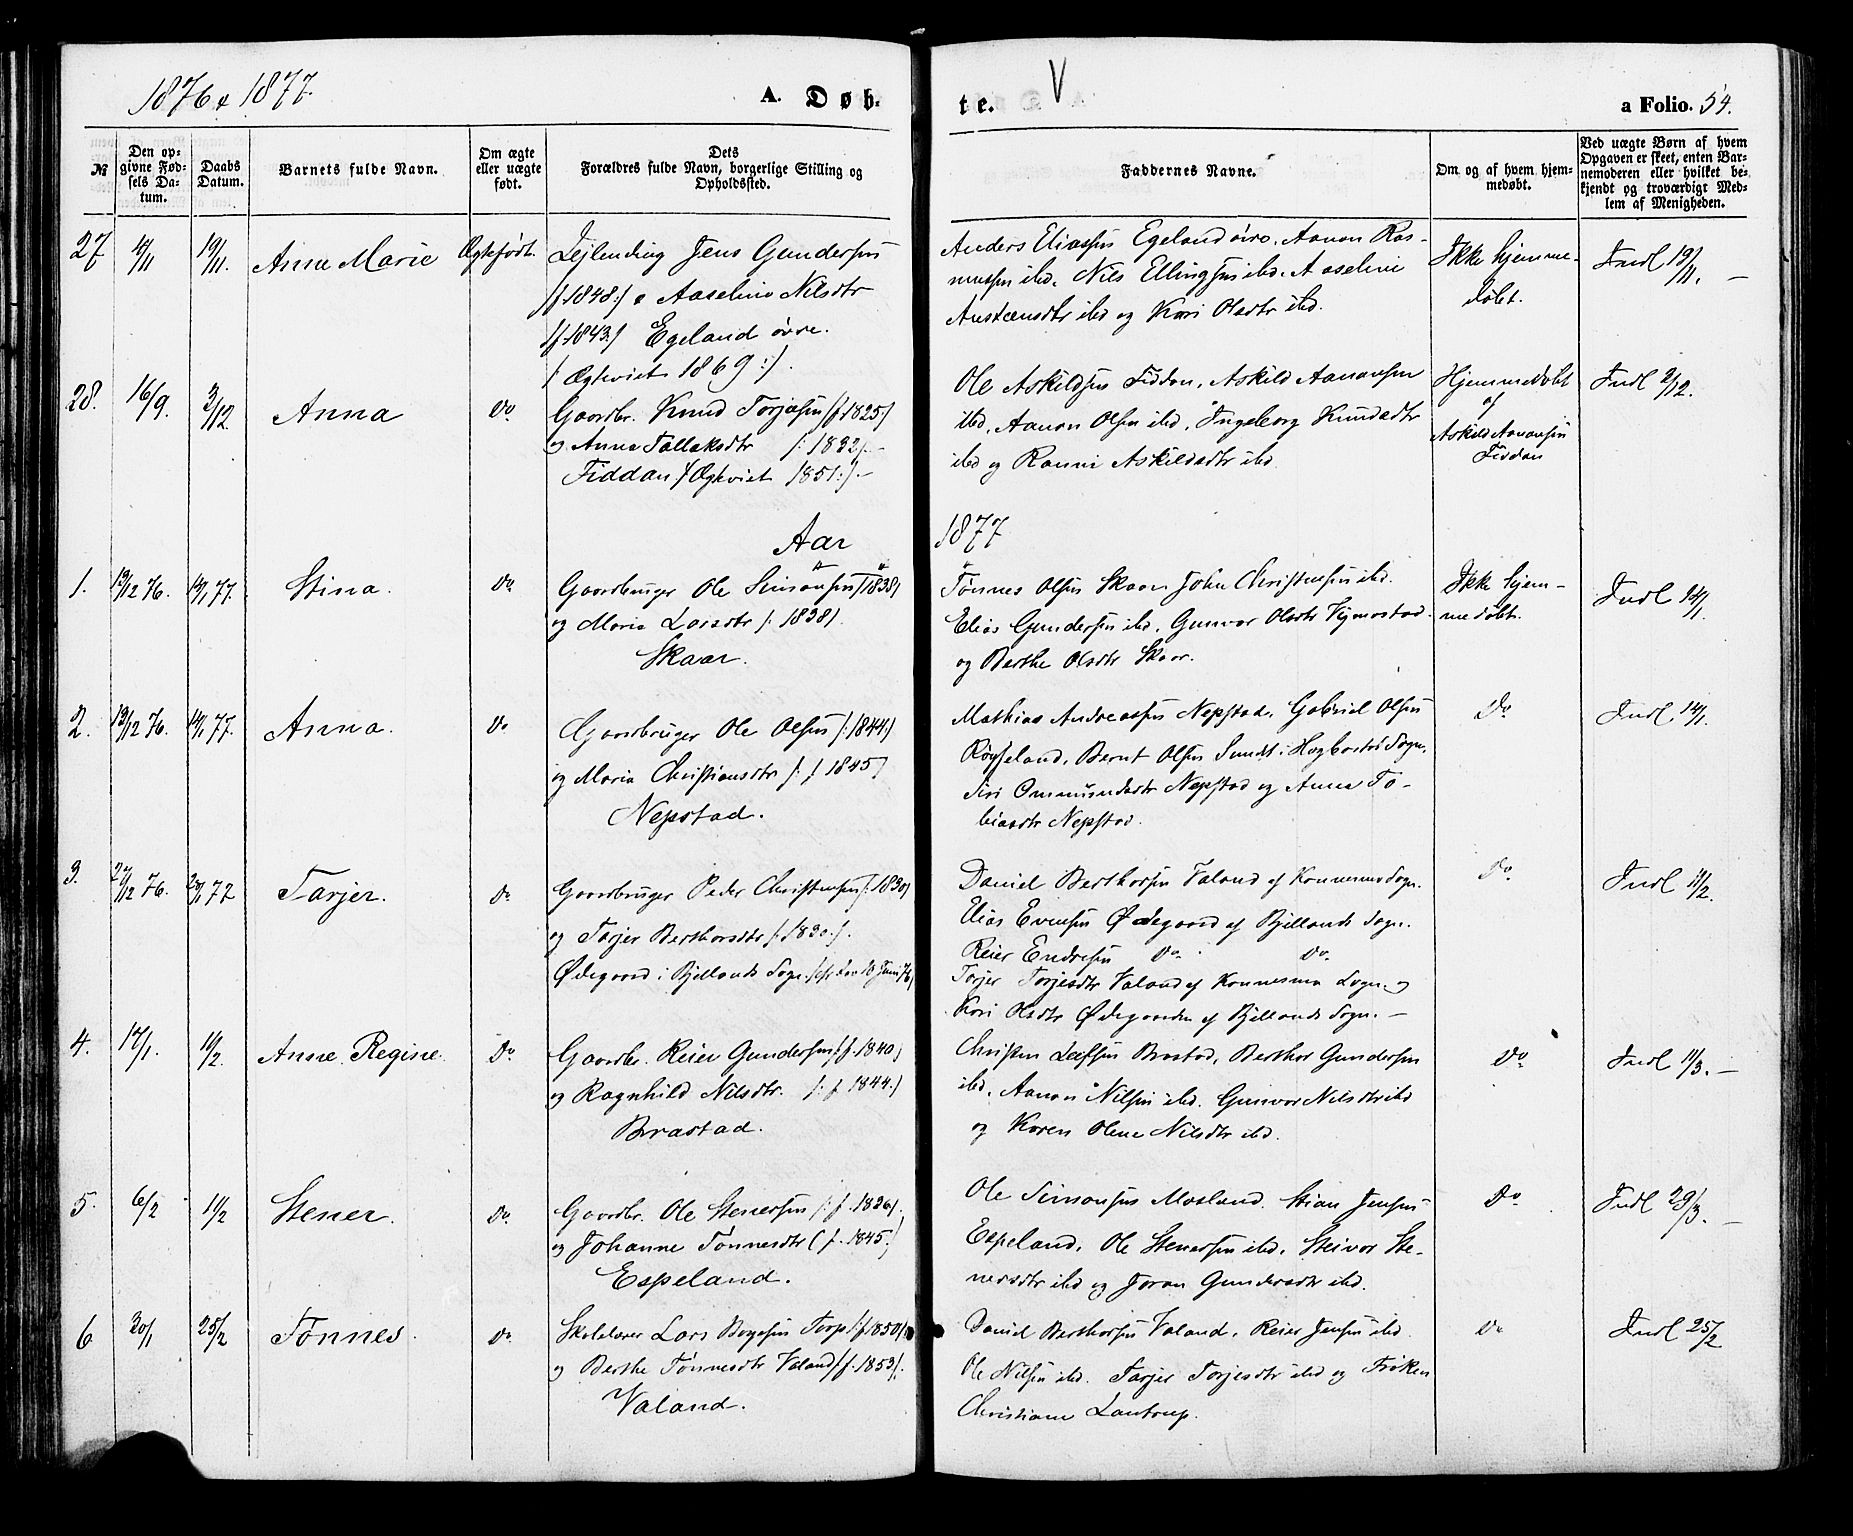 1876 & 1877.
A. Døb-
te.
V
a Folio. 54.
№
Den op-
givne Fød-
sels Da-
tum.
Daabs
Datum.
Barnets fulde Navn.
Om ægte
eller uægte
født.
Dets
Forældres fulde Navn, borgerlige Stilling og
Opholdssted.
Faddernes Navne.
Om og af hvem hjem-
medøbt.
Ved uægte Børn af hvem
Opgaven er skeet, enten Bar-
nemoderen eller hvilket be-
kjendt og troværdigt Med-
lem af Menigheden.
27
4/11
19/11.
Anne Marie
Ægtefødt.
Lejlending Jens Gundersen
/f 1848:/ & Aaseline Nilsdtr
/f 1843:/ Egeland øvre.
/ Ægteviet 1869:/.
Anders Eliassen Egeland øvre. Aanon Ras-
mussen ibd. Nils Ellingsen ibd. Aaseline
Austensdtr ibd og Kari Olsdtr ibd.
Ikke hjemme-
døbt.
Indl 19/11. —
28.
16/9.
3/12.
Anna
Do
Gaardbr. Knud Torjesen /f 1825:/
og Anne Tallaksdtr /: 1832/.-
Fiddan / Ægteviet 1851:/.-
Ole Askildsen Fiddan, Askild Aanonsen
ibd, Aanon Olsen ibd, Ingeborg Knudsdtr
ibd og Ranni Askildsdtr ibd
Hjemmedøbt
af
Askild Aanonsen
Fiddan
Indl 2/12.
Aar
1877
1.
19/12 76.
14/1 77.
Stina.
Do
Gaardbruger Ole Simonsen /f 1838/
og Maria Larsdtr /: 1838/.
Skaar.
Tønnes Olsen Skaar John Christensen ibd.
Elias Gundersen ibd, Gunvor Olsdtr Vigmostad
og Berthe Olsdtr Skaar.
Ikke hjem-
medøbt.
Indl 14/1.
2.
19/12 76.
14/1 77.
Anna.
Do
Gaardbruger Ole Olsen /: 1844:/
og Maria Christiansdtr /: f 1845/
Nepstad.
Mathias Andreassen Nepstad, Gabriel Olsen
Røyseland, Bernt Olsen Sundt i Hægbostad Sogn.
Siri Ommundsdtr Nepstad og Anna To-
biasdtr Nepstad.
Do
Indl 14/1.
3.
/12 76.
/1 77
Tarjer.
Do
Gaardbruger Peder Christensen /: 1830/
og Tarjer Berthorsdtr /: 1830:/.
Ødegaard i Bjellands Sogn.
Daniel Berthorsen Valand af Konnesmo Sogn.
Elias Evensen Ødegaard af Bjellands Sogn.
Reier Endresen Do Do
Tarjer Torjesdtr Valand af Konnesmo Sogn og
Kari Olsdtr Ødegaarden af Bjellands Sogn. —
Do
Indl 11/2.
4.
17/1.
11/2.
Anne Regine.
Do
Gaardbr. Reier Gundersen /: f. 1840/
og Ragnhild Nilsdtr. /: f 1844:/
Brastad.
Christen Leifsen Brastad, Berthor Gundersen
ibd, Aanon Nilsen ibd. Gunvor Nilsdtr ibd
og Karen Olene Nilsdtr ibd.
Do
Indl 11/3. —
5.
6/2
11/2
Stener.
Do.
Gaardbr. Ole Stenersen /: f. 1826/.
og Johanne Tønnesdtr ( f. 1845:/
Espeland.
Ole Simonsen Mosland. Stian Jensen
Espeland, Ole Stenersen ibd, Steivor Ste-
nersdtr ibd og Joran Gundersdtr ibd.
Do
Indl 29/3. —
6
30/1
25/2
Tønnes
Do.
Skolelærer Lars Bogesen Torp /: f 1850/
og Berthe Tønnesdtr Valand /: f. 1853/.
Valand.
Daniel Berthorsen Valand, Reier Jensen ibd.
Ole Nilsen ibd. Tarjer Torjesdtr ibd og Frøken
Christiane Lantrup.
Do
Indl 25/2